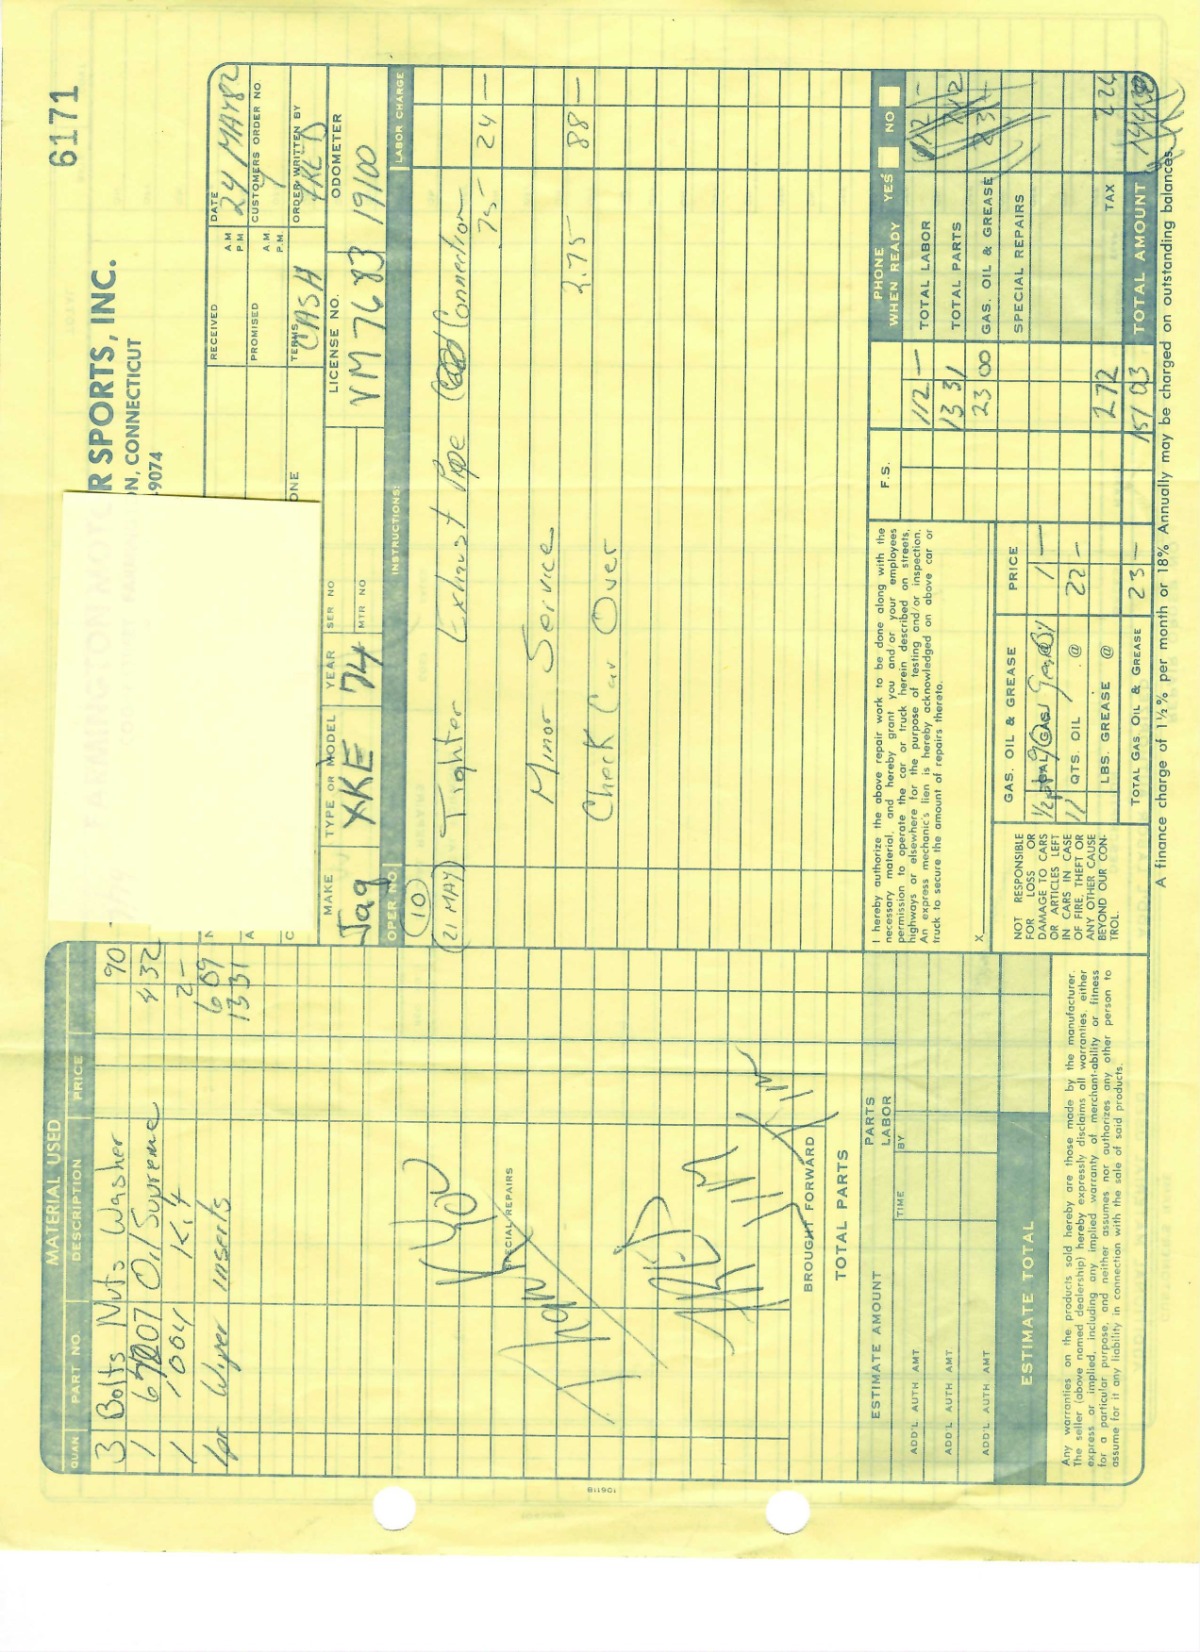 6171
R SPORTS, INC.
N, CONNECTICUT
49074
RECEIVED A.M P.M DATE 24 MAY 82
PROMISED A.M P.M. CUSTOMERS ORDER NO
ONE TERMS CASH ORDER WRITTEN BY FRED
MAKE TYPE OR MODEL YEAR SER NO LICENSE NO. ODOMETER
Jag XKE 74 MTR NO VM 7683 19100
OPER NO. INSTRUCTIONS: LABOR CHARGE
10
21 MAY Tighter Exhaust Pipe Connection
75- 24 —
Minor Service
2.75 88 —
Check Car Over
MATERIAL USED
QUAN PART NO. DESCRIPTION PRICE
3 Bolts Nuts Washer 90
1 Oil Supreme 4 32
1 1004 Kit 2 -
1pr Wiper inserts 6 09
13 31
Thank You
SPECIAL REPAIRS
FRED
Jim
Kim
BROUGHT FORWARD
TOTAL PARTS
ESTIMATE AMOUNT PARTS LABOR
TIME BY
ADD'L AUTH AMT
ADD'L AUTH AMT
ADD'L AUTH AMT
ESTIMATE TOTAL
Any warranties on the products sold hereby are those made by the manufacturer.
The seller (above named dealership) hereby expressly disclaims all warranties, either
express or implied, including any implied warranty of merchantability or fitness
for a particular purpose, and neither assumes nor authorizes any other person to
assume for it any liability in connection with the sale of said products.
106118
I hereby authorize the above repair work to be done along with the
necessary material, and hereby grant you and/or your employees
permission to operate the car or truck herein described on streets,
highways or elsewhere for the purpose of testing and/or inspection.
An express mechanic's lien is hereby acknowledged on above car or
truck to secure the amount of repairs thereto.
X
NOT RESPONSIBLE
FOR LOSS OR
DAMAGE TO CARS
OR ARTICLES LEFT
IN CARS IN CASE
OF FIRE, THEFT OR
ANY OTHER CAUSE
BEYOND OUR CON-
TROL.
GAS. OIL & GREASE PRICE
1/2 GAL. GAS 1 —
11 QTS. OIL @ 22 -
LBS. GREASE @
TOTAL GAS OIL & GREASE 23 —
F.S.
PHONE WHEN READY YES NO
112 — TOTAL LABOR 112 -
13 31 TOTAL PARTS
23 00 GAS. OIL & GREASE 23 -
SPECIAL REPAIRS
2 72 TAX
151 03 TOTAL AMOUNT
A finance charge of 1½% per month or 18% Annually may be charged on outstanding balances.